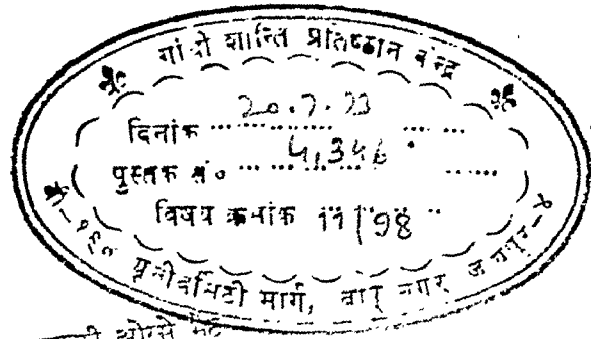 गांधी शान्ति प्रतिष्ठान केन्द्र
दिनांक ........ 20.7.23 ........
पुस्तक सं० ........ 4,346 ........
विषय क्रमांक 11/98
बी-१९० यूनीवर्सिटी मार्ग, बापू नगर जयपुर-४
ओरसे भेंट